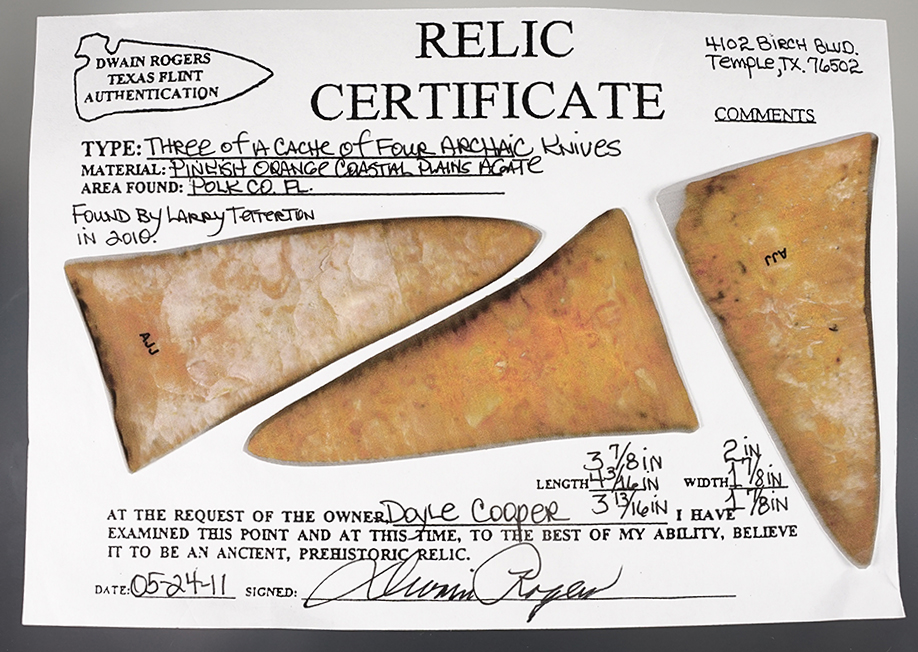 DWAIN ROGERS
TEXAS FLINT
AUTHENTICATION
RELIC
CERTIFICATE
4102 BIRCH BLVD.
Temple, TX. 76502
COMMENTS
TYPE: THREE of A CACHE of FOUR ARCHAIC KNIVES
MATERIAL: PINKISH ORANGE COASTAL PLAINS AGATE
AREA FOUND: POLK CO. FL.
FOUND BY LARRY TETTERTON
IN 2010.
AJJ
AJJ
3 7/8 IN
LENGTH 4 3/16 IN
3 13/16 IN
2 IN
WIDTH 1 7/8 IN
1 7/8 IN
AT THE REQUEST OF THE OWNER, Doyle Cooper I HAVE
EXAMINED THIS POINT AND AT THIS TIME, TO THE BEST OF MY ABILITY, BELIEVE
IT TO BE AN ANCIENT, PREHISTORIC RELIC.
DATE: 05-24-11 SIGNED: Dwain Rogers